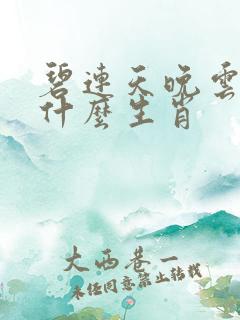 碧連天晚雲
什麼生肖
大西巷一
未经同意禁止转载